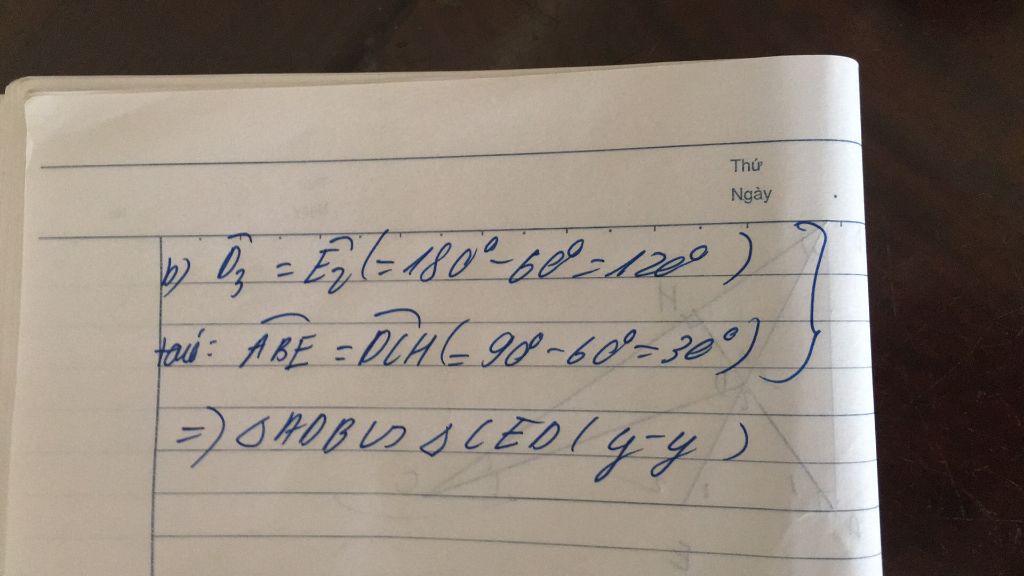 Thứ
Ngày
b) D̂₃ = Ê₂ (= 180° - 60° = 120°) }
ABE = DCH (= 90° - 60° = 30°)
=) △ADB ∽ △CED (g-g)